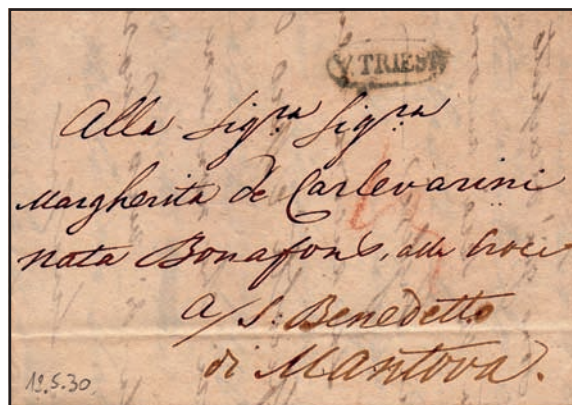 V. TRIEST
Alla Sigra Sigra
Margherita de Carlevarini
nata Bonafons, alle Croci
a/S. Benedetto
di Mantova.
12.5.30.